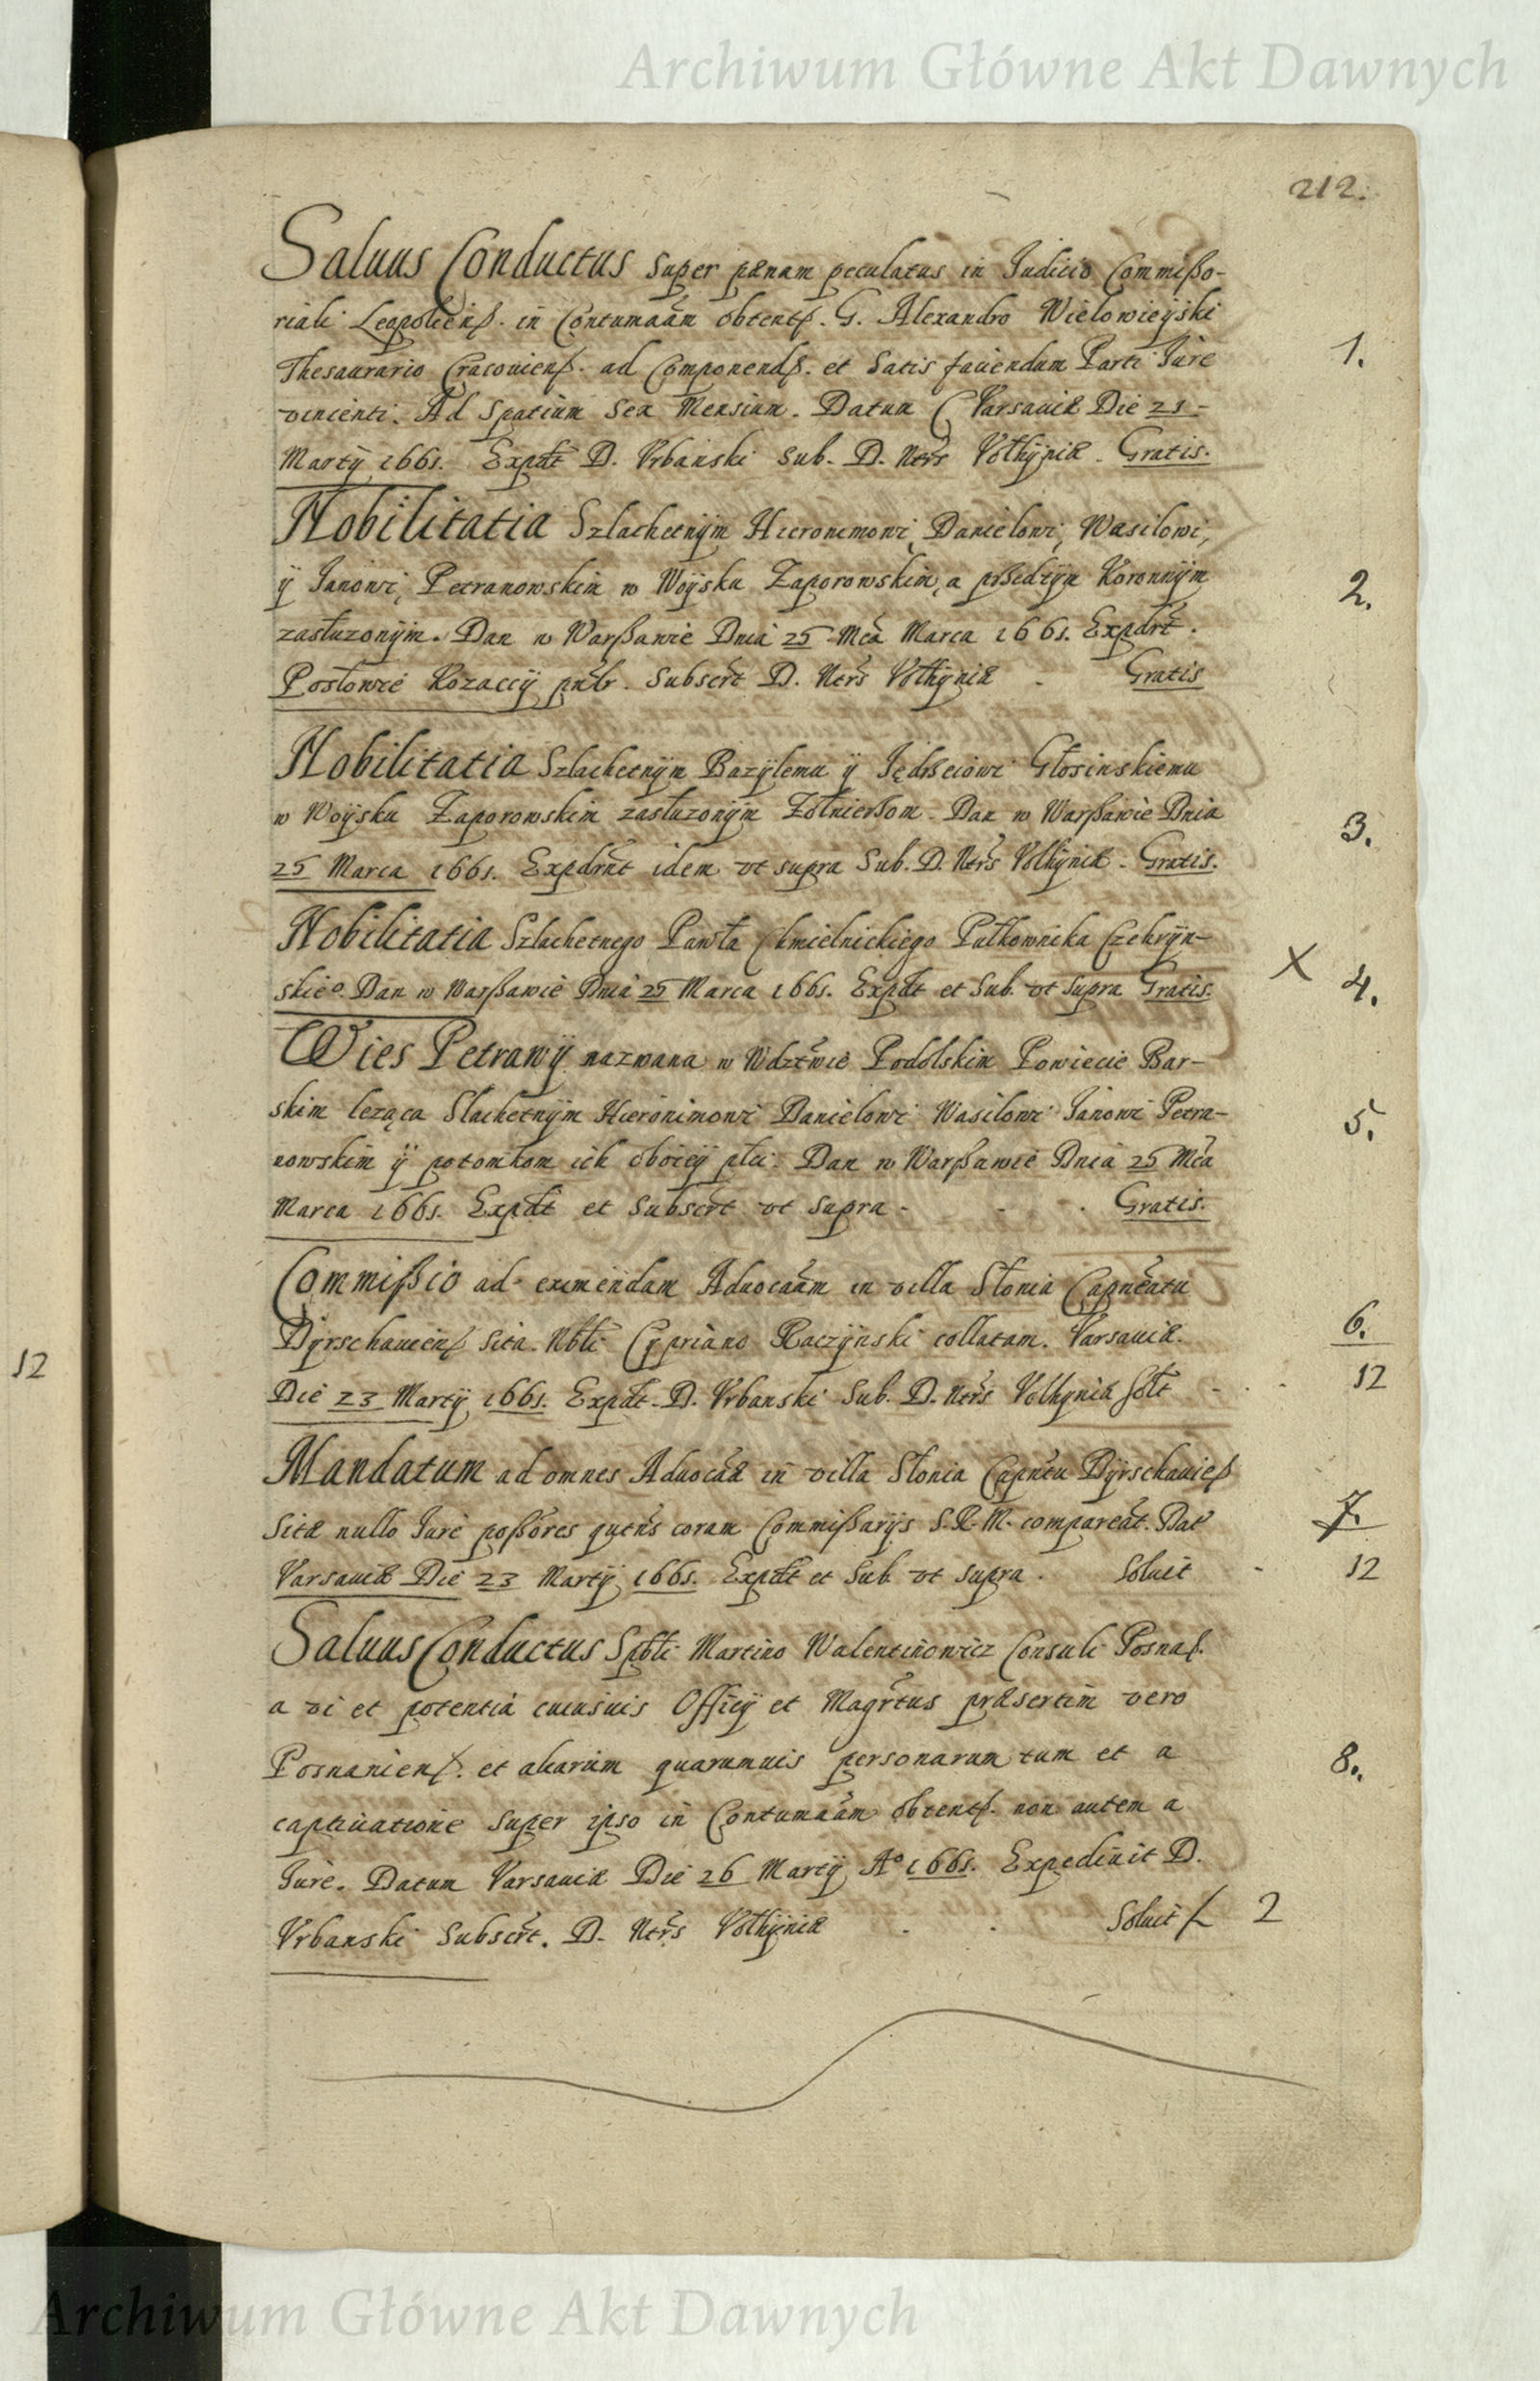 Archiwum Główne Akt Dawnych
212.
Saluus Conductus super pænam peculatus in Judicio Commißo-
riali Leopolienß. in Contumaãm obtentß. G. Alexandro Wielowieÿski
Thesaurario Cracouienß. ad Componendß. et Satis faciendum Parti Jure
vincienti. Ad Spatium Sex Mensium. Datum Varsauiæ Die 21
Martÿ 1661. Expdt D. Vrbanski Sub. D. Nrs Volhÿniæ. Gratis.
1.
Nobilitatia Szlachetnÿm Hieronimowi, Danielowi, Wasilowi,
ÿ Janowi, Petranowskim w Woÿsku Zaporowskim, a przedtÿm Koronnÿm
zasłuzonÿm. Dan w Warßawie Dnia 25 Mca Marca 1661. Expdrt.
Posłowie Kozaccÿ Subscrt D. Nrs Volhÿniæ - Gratis
2.
Nobilitatia Szlachetnÿm Bazÿlemu ÿ Jędrzeiowi Głosinskiemu
w Woÿsku Zaporowskim zasłuzonÿm Zołnierzom. Dan w Warßawie Dnia
25 Marca 1661. Expdrnt idem vt supra Sub. D. Nrs Volhÿniæ. Gratis.
3.
Nobilitatia Szlachetnego Pawła Chmielnickiego Pułkownika Czehrÿn-
skieo. Dan w Warßawie Dnia 25 Marca 1661. Expdt et Sub. vt Supra Gratis.
X 4.
Wies Petrawÿ nazwana w Wdztwie Podolskim Powiecie Bar-
skim leząca Slachetnÿm Hieronimowi Danielowi Wasilowi Janowi Petra-
nowskim ÿ potomkom ich oboieÿ płci. Dan w Warßawie Dnia 25 Mca
Marca 1661. Expdt et Subscrt vt supra - - . Gratis.
5.
Commißio ad eximendam Aduocaãm in villa Słonia Capneatu
Dÿrschauienß sita Nbli Cypriano Raczÿnski collatam. Varsauiæ.
Die 23 Martÿ 1661. Expdt D. Vrbanski Sub. D. Nrs Volhÿniæ Solt - . -
6.
12
12
Mandatum ad omnes Aduocãæ in villa Słonia Capnếu Dÿrschauieß
Sitæ nullo Jure poßores qutns coram Commißarijs S.R.M. compareãt. Dat
Varsauiæ Die 23 Martÿ 1661. Expdt et Sub. vt supra. Soluit -
7.
12
Saluus Conductus Spbli Martino Walentinowicz Consuli Posnaß.
a vi et potentia cuiusuis Officÿ et Magrtus præsertim vero
Posnanienß. et aliarum quarumuis personarum tum et a
captiuatione super ipso in Contumaãm obtentß. non autem a
Jure. Datum Varsauiæ Die 26 Martÿ Ao 1661. Expediuit D.
Vrbanski Subscrt. D. Nrs Volhÿniæ . . Soluit f 2
8.
Archiwum Główne Akt Dawnych